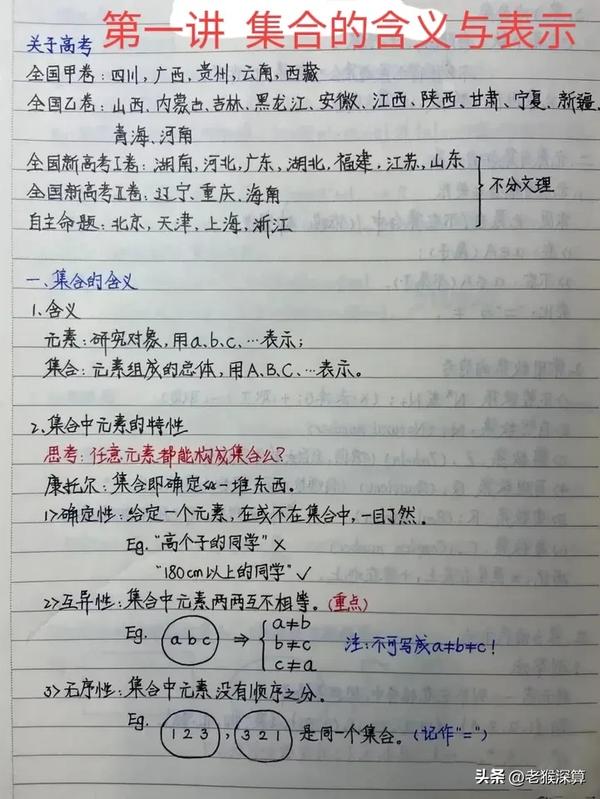 第一讲 集合的含义与表示
关于高考
全国甲卷：四川，广西，贵州，云南，西藏
全国乙卷：山西、内蒙古、吉林、黑龙江、安徽、江西、陕西、甘肃、宁夏、新疆、
青海、河南
全国新高考I卷：湖南，河北，广东，湖北，福建，江苏，山东
全国新高考II卷：辽宁、重庆、海南
不分文理
自主命题：北京，天津，上海，浙江
一、集合的含义
1、含义
元素：研究对象，用a、b、c、…表示；
集合：元素组成的总体，用A、B、C、…表示。
2、集合中元素的特性
思考：任意元素都能构成集合么？
康托尔：集合即确定的一堆东西。
1>确定性：给定一个元素，在或不在集合中，一目了然。
Eg. "高个子的同学" ×
"180cm以上的同学" ✓
2>互异性：集合中元素两两互不相等。(重点)
Eg. a b c ⇒ { a≠b
b≠c
c≠a
注：不可写成a≠b≠c！
3>无序性：集合中元素没有顺序之分。
Eg. 1 2 3 , 3 2 1 是同一个集合。(记作"=")
头条 @老猴深算